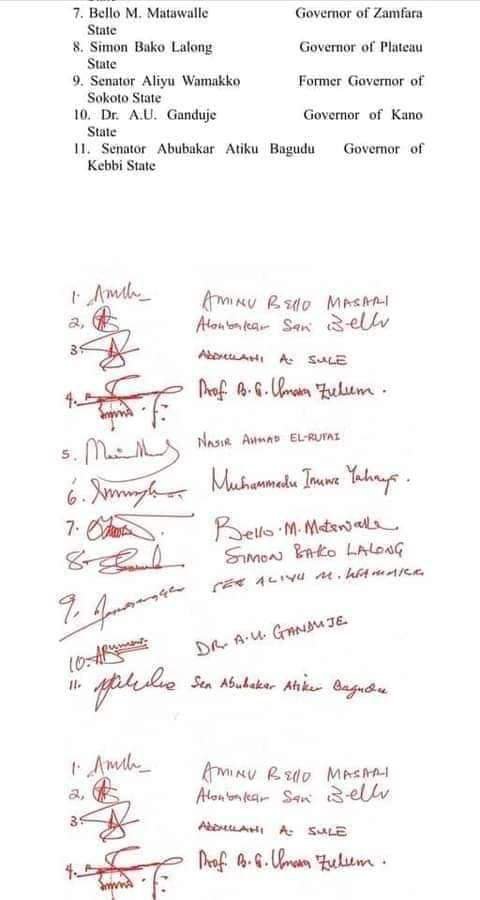 7. Bello M. Matawalle Governor of Zamfara
State
8. Simon Bako Lalong Governor of Plateau
State
9. Senator Aliyu Wamakko Former Governor of
Sokoto State
10. Dr. A.U. Ganduje Governor of Kano
State
11. Senator Abubakar Atiku Bagudu Governor of
Kebbi State
1. AMINU BELLO MASARI
2, Abubakar Sani Bello
3. ABDULLAHI A. SULE
4. Prof. B. G. Umara Zulum.
5. NASIR AHMAD EL-RUFAI
6. Muhammadu Inuwa Yahaya.
7. Bello. M. Matawalle
8- SIMON BAKO LALONG
9, SEN ALIYU M. WAMAKKO
10. DR. A.U. GANDUJE
11. Sen Abubakar Atiku Bagudu
1. AMINU BELLO MASARI
2, Abubakar Sani Bello
3. ABDULLAHI A. SULE
4. Prof. B. G. Umara Zulum.